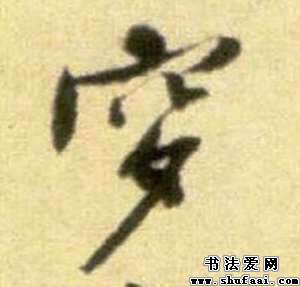 穿
书法爱网
www.shufaai.com